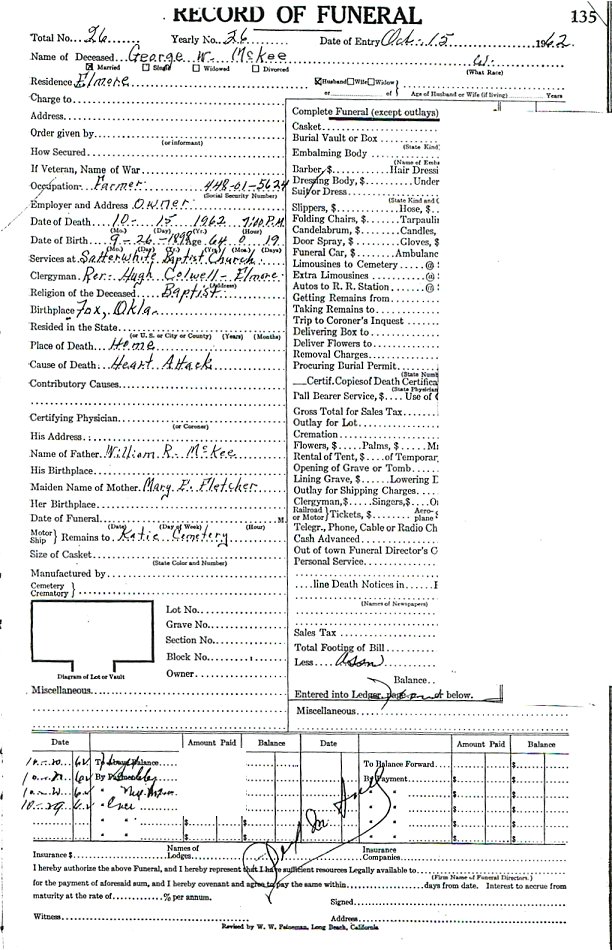 RECORD OF FUNERAL 135
Total No. 26 Yearly No. 26 Date of Entry Oct. 15 1962
Name of Deceased George W. McKee W.
Married Single Widowed Divorced (What Race)
Residence Elmore Husband Wife Widow
or of Age of Husband or Wife (if living) Years
Charge to
Address
Order given by
(or informant)
How Secured
If Veteran, Name of War
Occupation Farmer 448-01-5624
(Social Security Number)
Employer and Address Owner
Date of Death 10 - 15 1962 7:40 P.M.
(Mo.) (Day) (Yr.) (Hour)
Date of Birth 9 - 26 - 1898 Age 64 0 19
(Mo.) (Day) (Yr.) (Yrs.) (Mon.) (Days)
Services at Satterwhite Baptist Church
Clergyman Rev. Hugh Colwell - Elmore
(Address)
Religion of the Deceased Baptist
Birthplace Fox, Okla.
Resided in the State
(or U. S. or City or County) (Years) (Months)
Place of Death Home
Cause of Death Heart Attack
Contributory Causes
Certifying Physician
(or Coroner)
His Address
Name of Father William R. McKee
His Birthplace
Maiden Name of Mother Mary E. Fletcher
Her Birthplace
Date of Funeral M
(Date) (Day of Week) (Hour)
Motor Ship Remains to Katie Cemetery
Size of Casket
(State Color and Number)
Manufactured by
Cemetery
Crematory
Lot No.
Grave No.
Section No.
Block No.
Owner
Diagram of Lot or Vault
Miscellaneous
Complete Funeral (except outlays)
Casket
Burial Vault or Box
(State Kind
Embalming Body
(Name of Emba
Barber, $ Hair Dressi
Dressing Body, $ Under
Suit or Dress
(State Kind and C
Slippers, $ Hose, $
Folding Chairs, $ Tarpaulin
Candelabrum, $ Candles,
Door Spray, $ Gloves, $
Funeral Car, $ Ambulanc
Limousines to Cemetery @
Extra Limousines @
Autos to R. R. Station @
Getting Remains from
Taking Remains to
Trip to Coroner's Inquest
Delivering Box to
Deliver Flowers to
Removal Charges
Procuring Burial Permit
(State Numb
Certif. Copies of Death Certifica
(State Physician
Pall Bearer Service, $ Use of
Gross Total for Sales Tax
Outlay for Lot
Cremation
Flowers, $ Palms, $ Mu
Rental of Tent, $ of Temporar
Opening of Grave or Tomb
Lining Grave, $ Lowering D
Outlay for Shipping Charges
Clergyman, $ Singers, $ O
Railroad or Motor Tickets, $ Aero-plane $
Telegr., Phone, Cable or Radio Ch
Cash Advanced
Out of town Funeral Director's C
Personal Service
line Death Notices in
(Names of Newspapers)
Sales Tax
Total Footing of Bill
Less Assn
Balance
Entered into Ledger, page below.
Miscellaneous
Date Amount Paid Balance Date Amount Paid Balance
To Balance To Balance Forward
By By Payment
Insurance $ Names of Lodges Insurance Companies
I hereby authorize the above Funeral, and I hereby represent that I have sufficient resources Legally available to
(Firm Name of Funeral Directors.)
for the payment of aforesaid sum, and I hereby covenant and agree to pay the same within days from date. Interest to accrue from
maturity at the rate of % per annum. Signed
Witness Address
Revised by W. W. Feineman, Long Beach, California